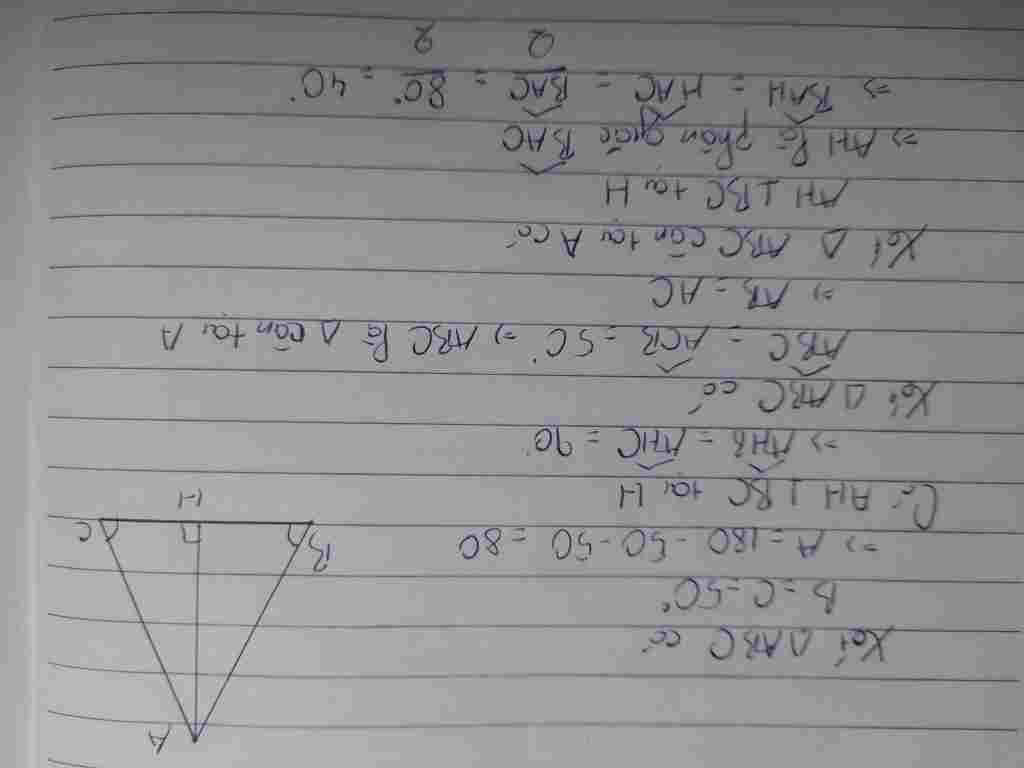 A
B
C
H
Xét △ABC có
B = C = 50°
=> A = 180 - 50 - 50 = 80
Có AH ⊥ BC tại H
=> AHB = AHC = 90°
Xét △ ABC có
ABC = ACB = 50° => ABC là △ cân tại A
=> AB = AC
Xét △ ABC cân tại A có
AH ⊥ BC tại H
=> AH là phân giác BAC
=> BAH = HAC = BAC/2 = 80°/2 = 40°